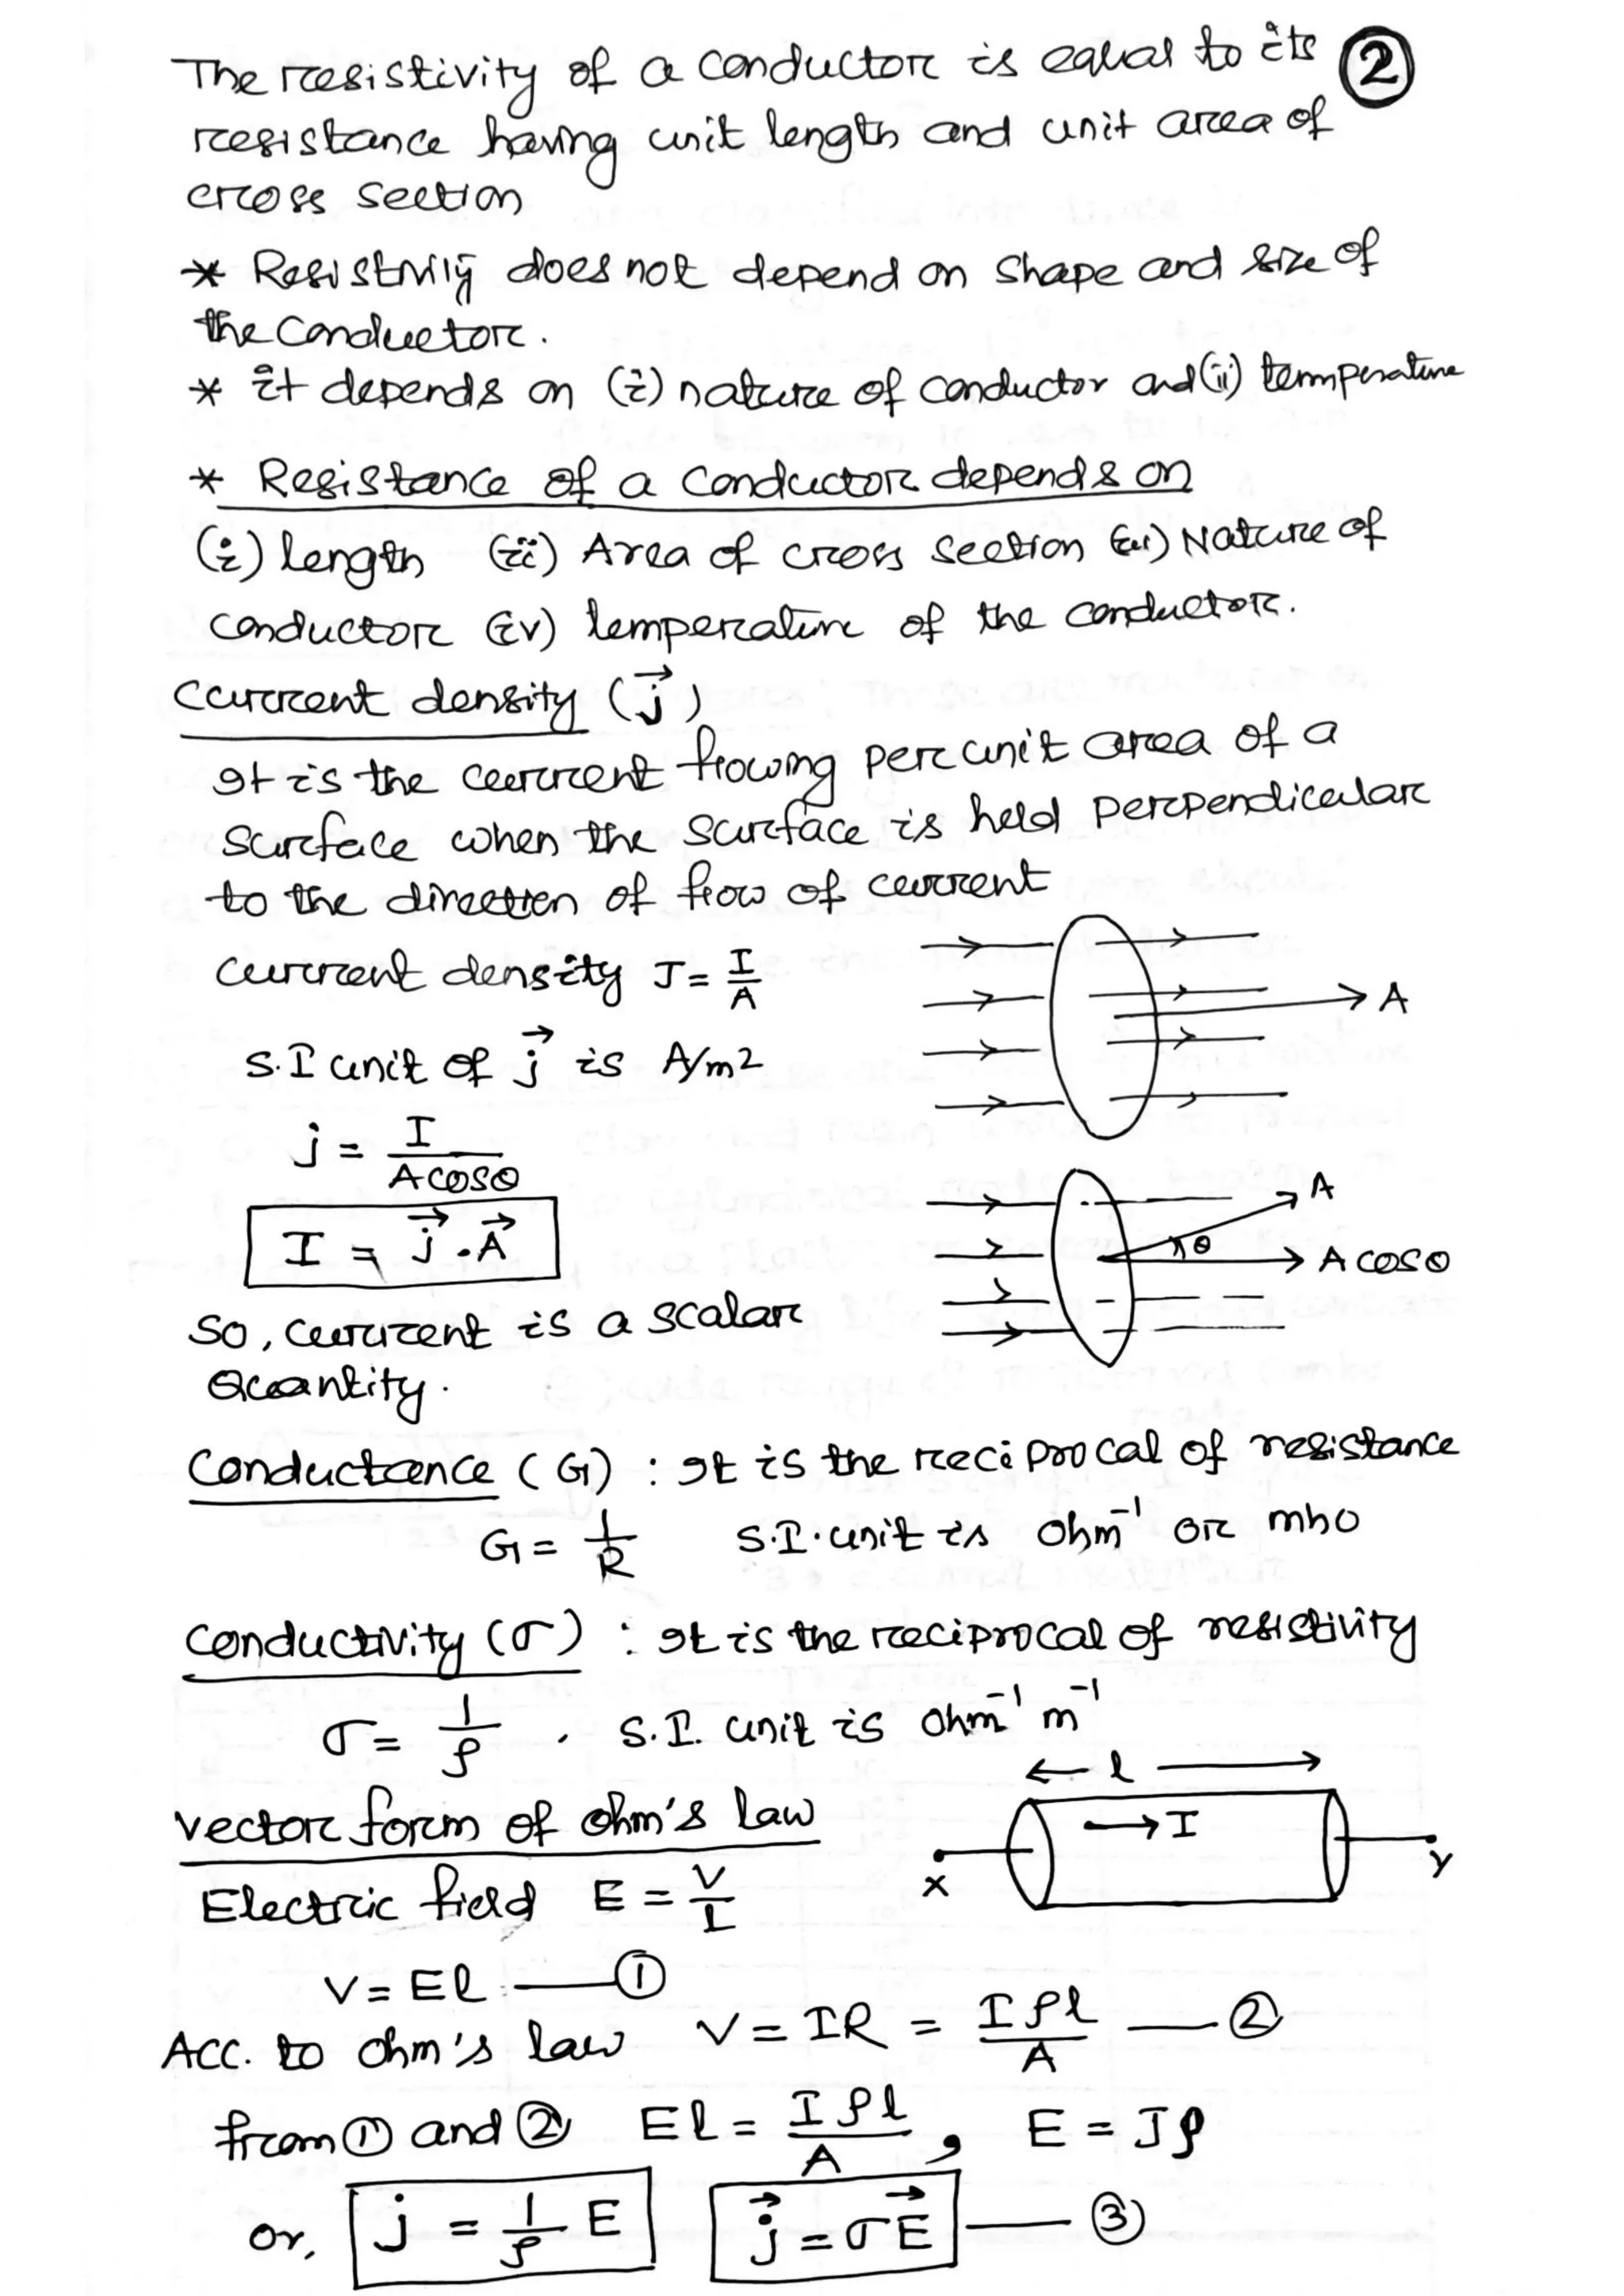 The resistivity of a conductor is equal to its ②
resistance having unit length and unit area of
cross section
* Resistivity does not depend on shape and size of
the conductor.
* it depends on (i) nature of conductor and (ii) temperature
* Resistance of a conductor depends on
(i) length (ii) Area of cross section (iii) Nature of
conductor (iv) temperature of the conductor.
Current density (j⃗)
It is the current flowing per unit area of a
surface when the surface is held perpendicular
to the direction of flow of current
current density J = I/A
A
S.I unit of j⃗ is A/m2
j = I/A cosθ
A
I = j⃗ . A⃗
θ
A cosθ
So, current is a scalar
Quantity.
Conductance (G) : It is the reciprocal of resistance
G = 1/R S.I. unit is ohm⁻¹ or mho
Conductivity (σ) : It is the reciprocal of resistivity
σ = 1/ρ . S.I. unit is ohm⁻¹ m⁻¹
l
Vector form of ohm's law
I
x
y
Electric field E = V/L
V = El — ①
Acc. to ohm's law V = IR = Iρl/A — ②
from ① and ② El = Iρl/A , E = Jρ
or, j = 1/ρ E j⃗ = σE⃗ — ③